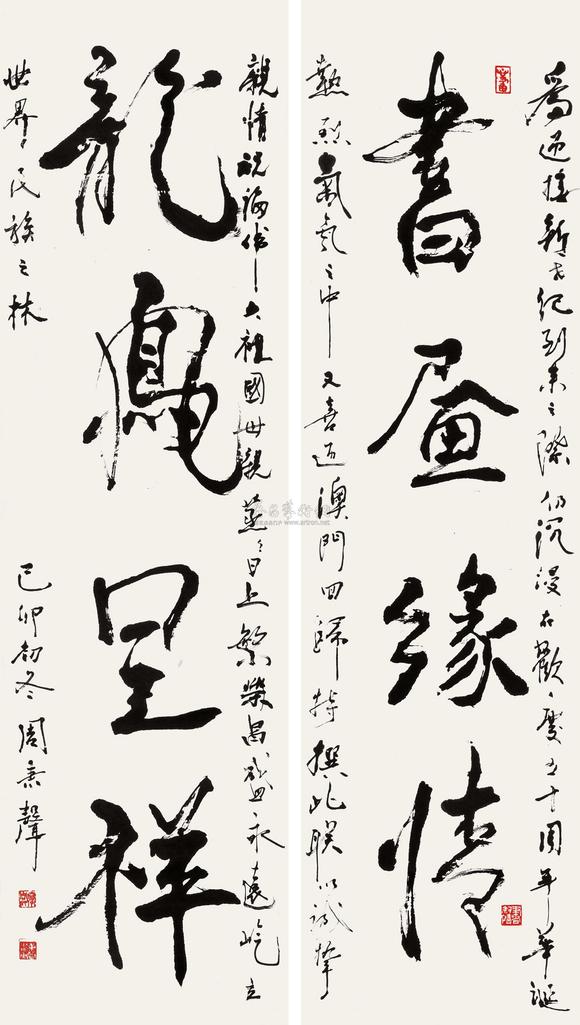 為迎接新世紀到來之際仍沉浸在歡慶五十周年華誕
書畫緣情
熱烈氣氛之中又喜迎澳門回歸特撰此联以誠摯
親情祝福偉大祖國母親蒸〻日上繁榮昌盛永遠屹立
龍鳳呈祥
世界民族之林
己卯初冬 周聲
www.artron.net